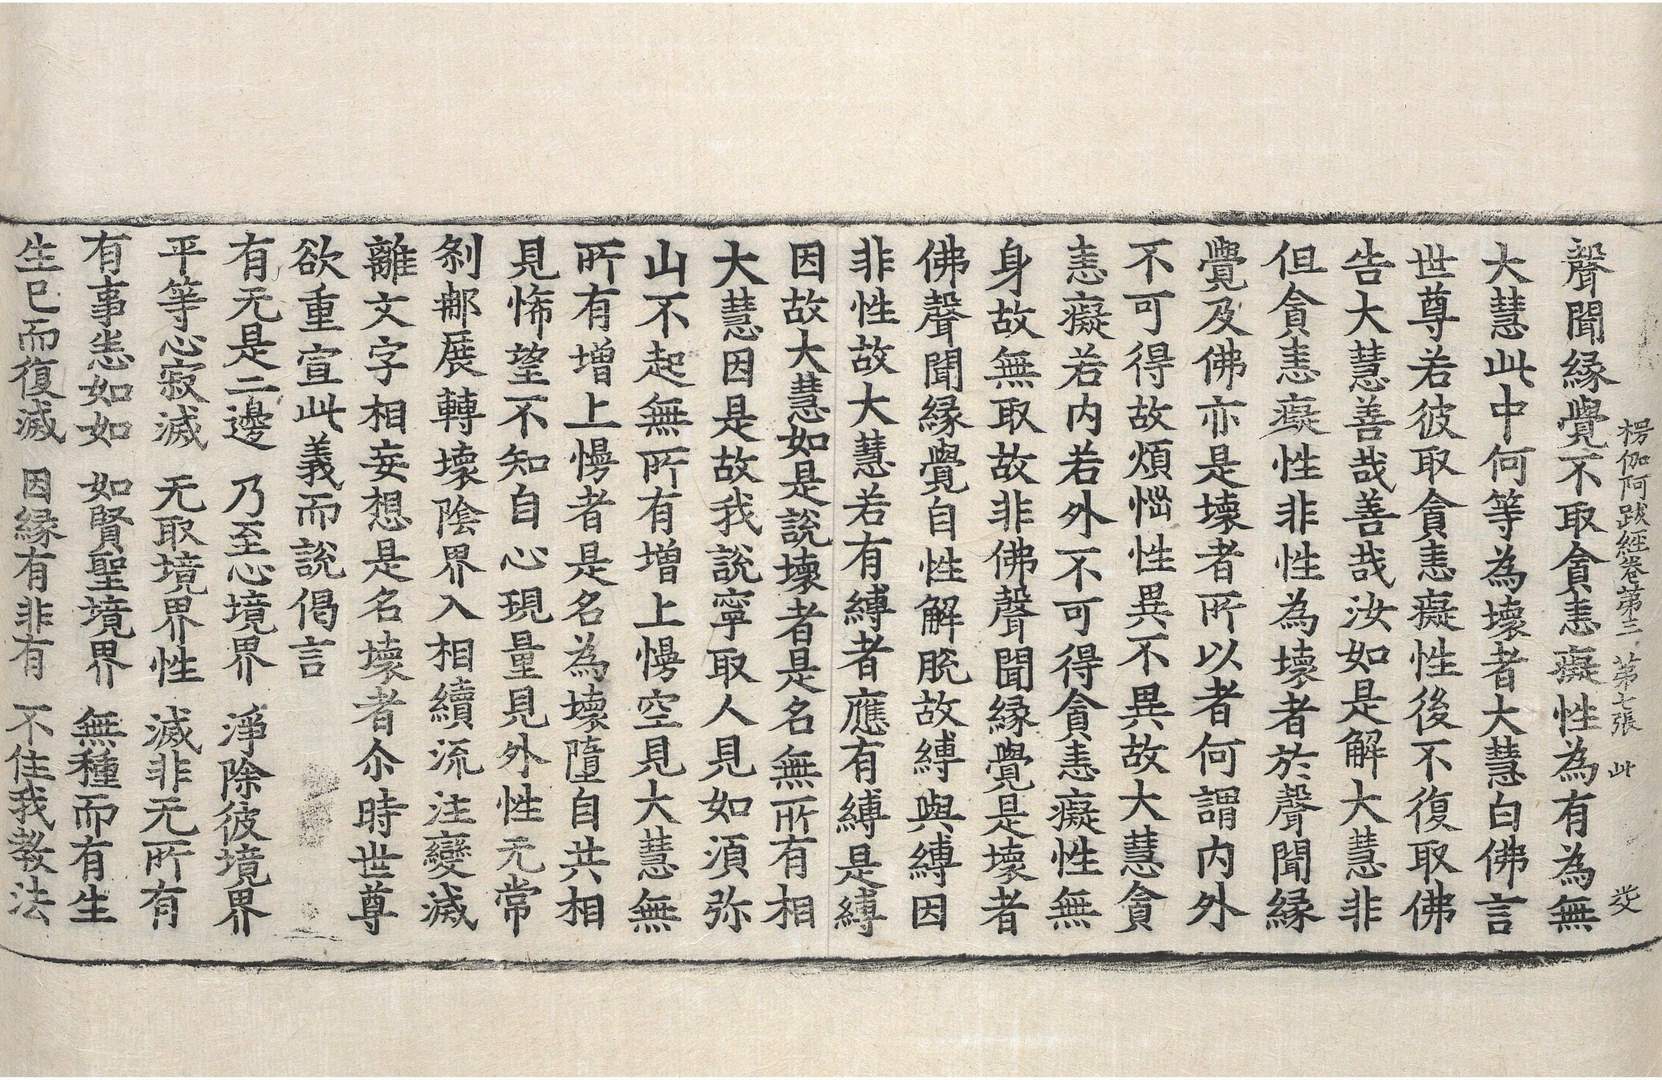 楞伽阿跋經卷第三 第七張 此
聲聞縁覺不取貪恚癡性為有為無
大慧此中何等為壞者大慧白佛言
世尊若彼取貪恚癡性後不復取佛
告大慧善哉善哉汝如是解大慧非
但貪恚癡性非性為壞者於聲聞縁
覺及佛亦是壞者所以者何謂内外
不可得故煩惱性異不異故大慧貪
恚癡若内若外不可得貪恚癡性無
身故無取故非佛聲聞縁覺是壞者
佛聲聞縁覺自性解脫故縛與縛因
非性故大慧若有縛者應有縛是縛
因故大慧如是說壞者是名無所有相
大慧因是故我說寧取人見如須弥
山不起無所有增上慢空見大慧無
所有增上慢者是名為壞墮自共相
見悕望不知自心現量見外性无常
剎那展轉壞陰界入相續流注變滅
離文字相妄想是名壞者尒時世尊
欲重宣此義而說偈言
有无是二邊 乃至心境界 淨除彼境界
平等心寂滅 无取境界性 滅非无所有
有事悉如如 如賢聖境界 無種而有生
生已而復滅 因縁有非有 不住我教法